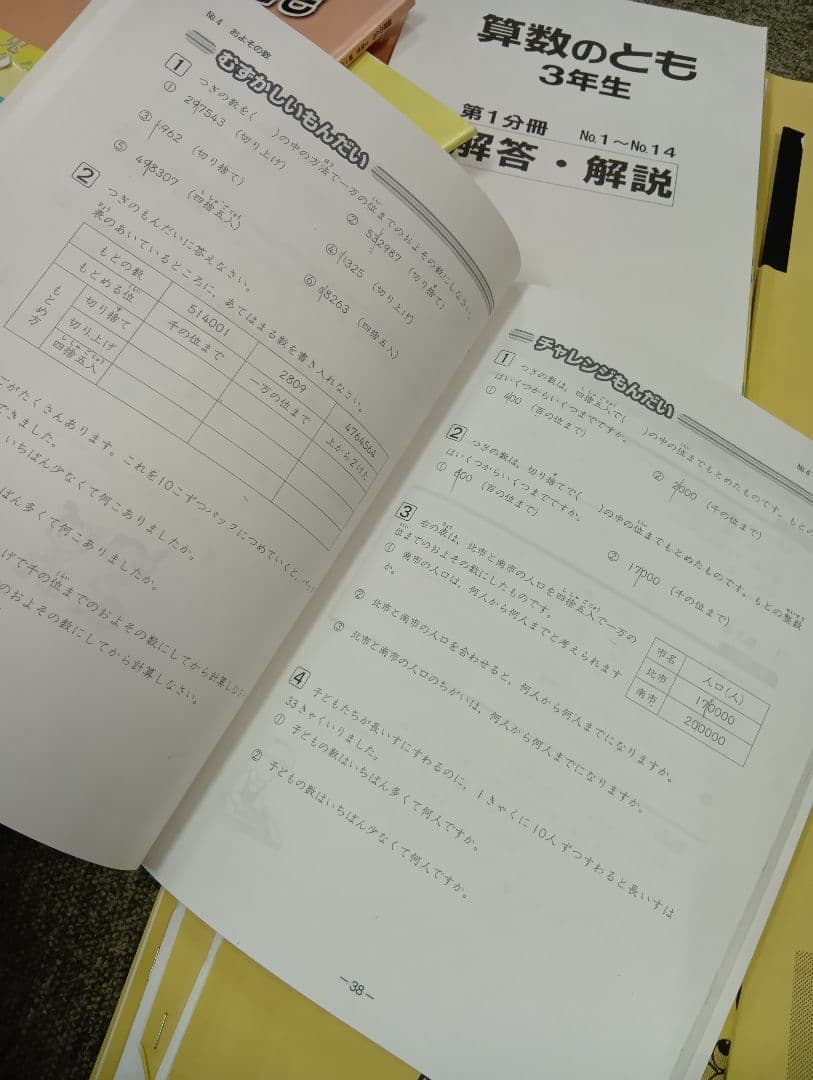 算数のとも
3年生
第1分冊 No.1～No.14
解答・解説
No.4 およその数
むずかしいもんだい
1 つぎの数を( )の中の方法で一万の位までのおよその数にしなさい。
① 297543 (切り上げ)
② 532987 (切り捨て)
③ 1962 (切り捨て)
④ 1325 (切り上げ)
⑤ 498307 (四捨五入)
⑥ 48263 (四捨五入)
2 つぎのもんだいに答えなさい。
表のあいているところに、あてはまる数を書き入れなさい。
もとの数 514001 2809 4764564
もとめる位 千の位まで 一万の位まで 上から2けた
もとめ方
切り捨て
切り上げ
四捨五入
がたくさんあります。これを10こずつパックにつめていくと、
できました。
いちばん少なくて何こありましたか。
ばん多くて何こありましたか。
けて千の位までのおよその数にしてから計算し
のおよその数にしてから計算しなさい。
No.4
チャレンジもんだい
1 つぎの数は、四捨五入で( )の中の位までもとめたものです。もとの
はいくつからいくつまでですか。
① 400 (百の位まで)
② 2000 (千の位まで)
2 つぎの数は、切り捨てで( )の中の位までもとめたものです。もとの整数
はいくつからいくつまでですか。
① 400 (百の位まで)
② 17000 (千の位まで)
3 右の表は、北市と南市の人口を四捨五入で一万の
位までのおよその数にしたものです。
① 南市の人口は、何人から何人までと考えられます
か。
② 北市と南市の人口を合わせると、何人から何人までになりますか。
③ 北市と南市の人口のちがいは、何人から何人までになりますか。
市名 人口(人)
北市 170000
南市 200000
4 子どもたちが長いすにすわるのに、1きゃくに10人ずつすわると長いすは
33きゃくいりました。
① 子どもの数はいちばん多くて何人ですか。
② 子どもの数はいちばん少なくて何人ですか。
－38－